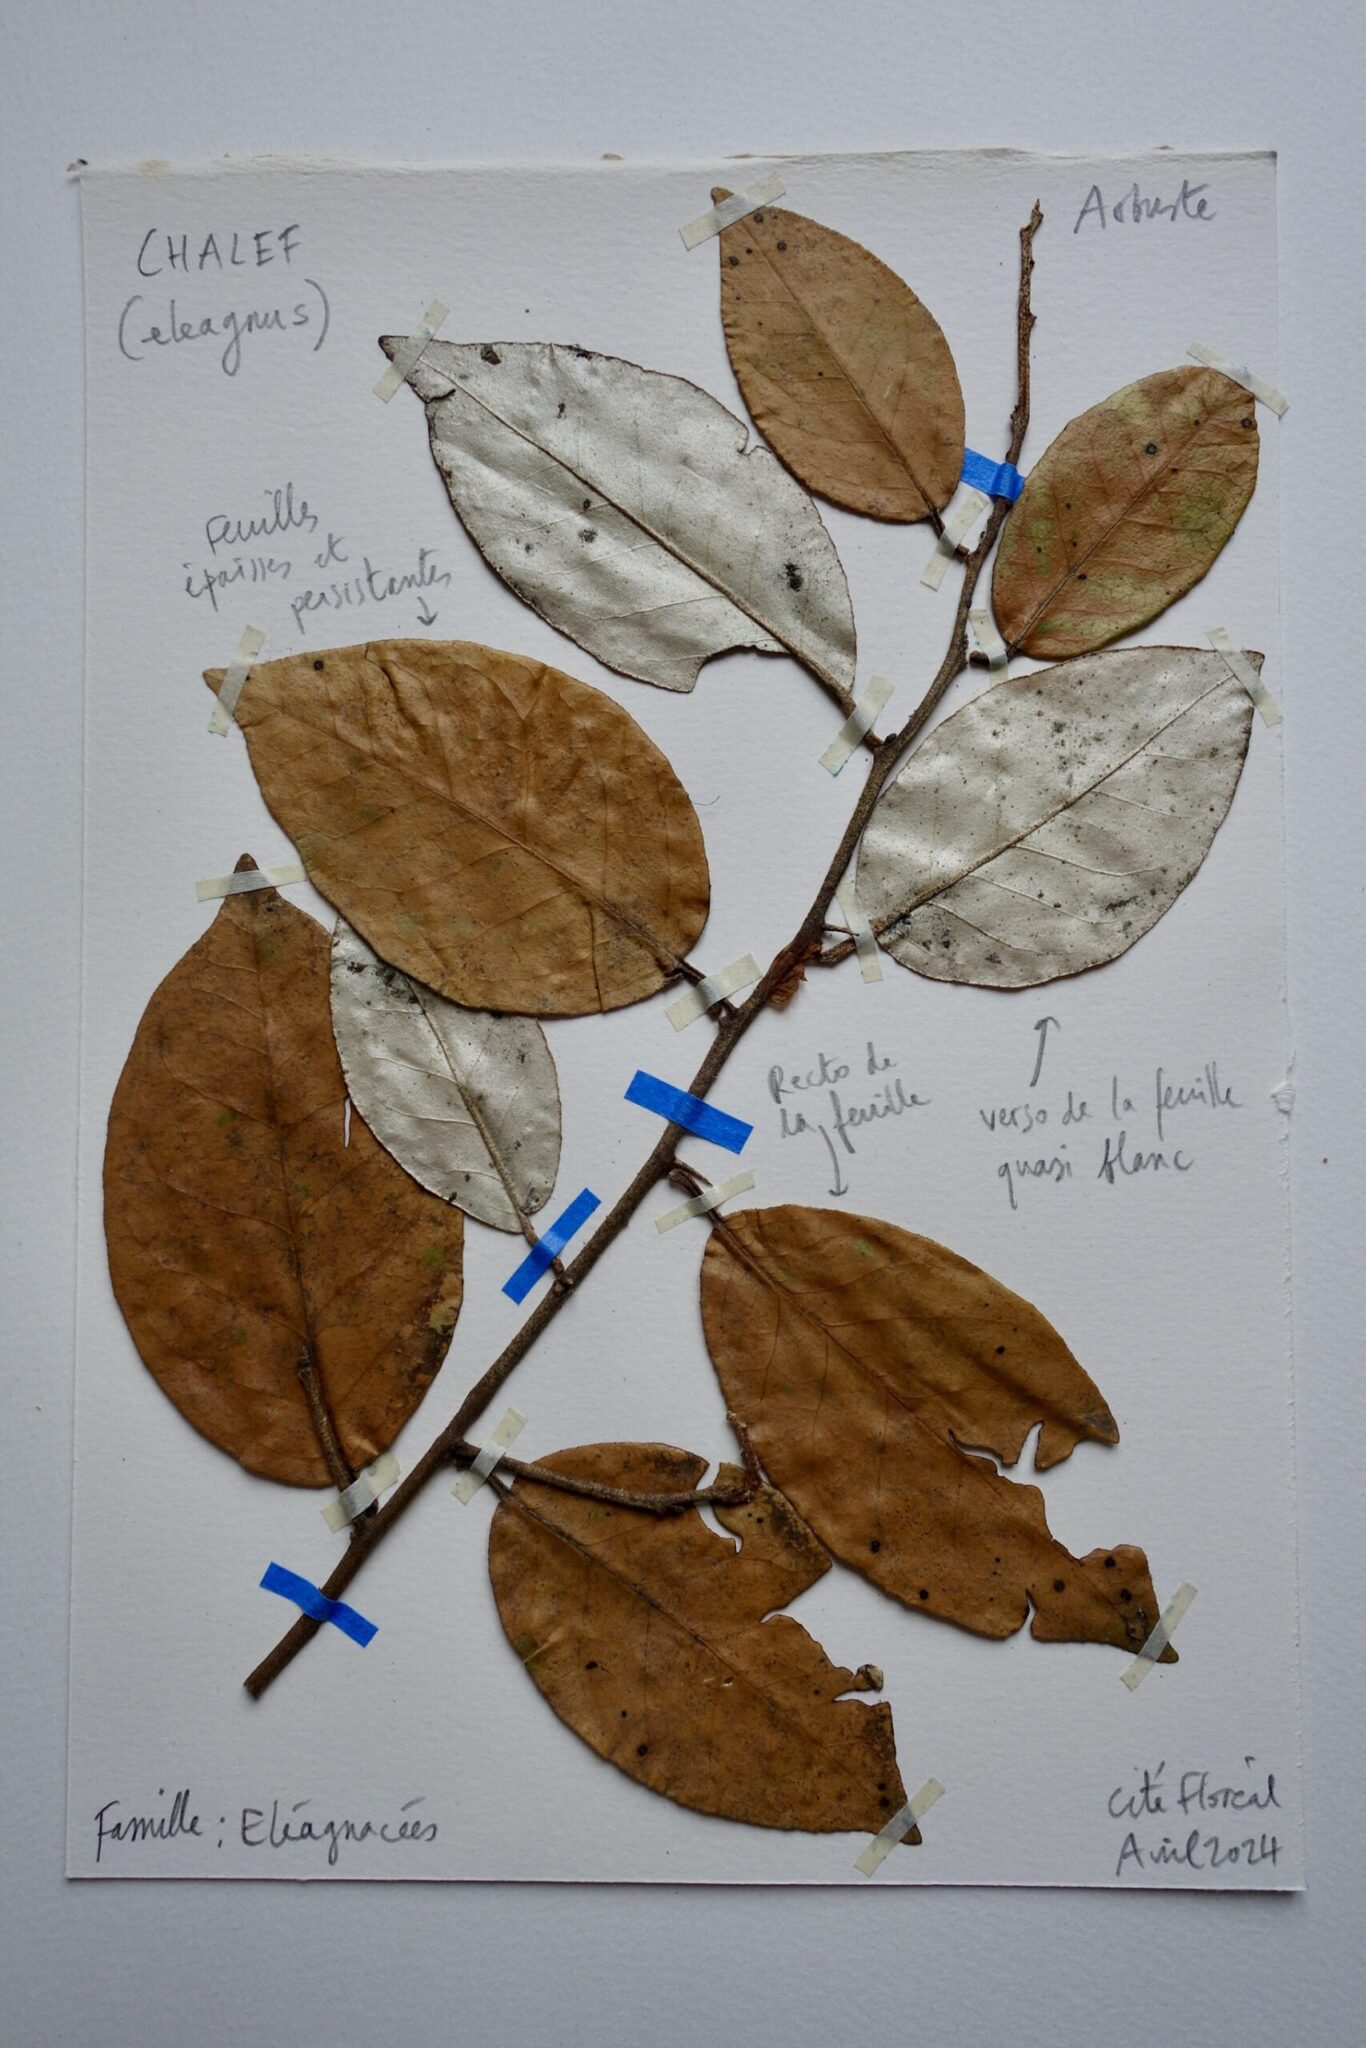 CHALEF
(eleagnus)
Arbuste
Feuilles
épaisses et
persistantes
Recto de
la feuille
verso de la feuille
quasi blanc
Famille : Eléagnacées
Cité Floréal
Avril 2024